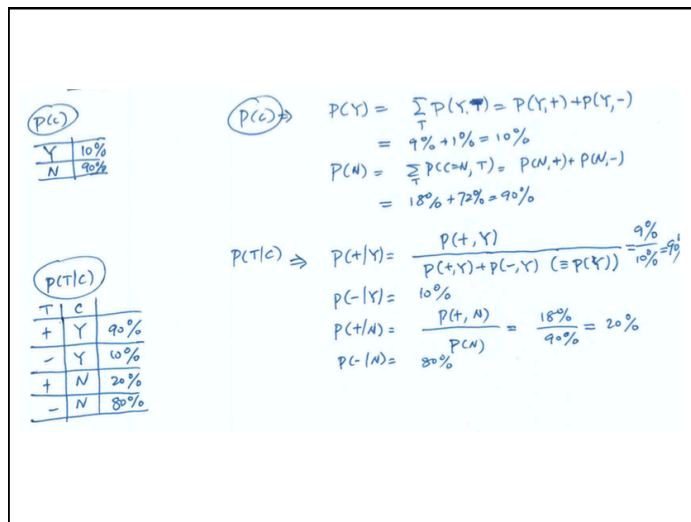 P(C)
Y 10%
N 90%
P(T|C)
T C
+ Y 90%
- Y 10%
+ N 20%
- N 80%
P(C) ⇒ P(Y) = Σ_T P(Y,T) = P(Y,+) + P(Y,-)
= 9% + 1% = 10%
P(N) = Σ_T P(C=N, T) = P(N,+) + P(N,-)
= 18% + 72% = 90%
P(T|C) ⇒ P(+|Y) = P(+,Y) / P(+,Y) + P(-,Y) (≡ P(Y)) = 9% / 10% = 90%
P(-|Y) = 10%
P(+|N) = P(+,N) / P(N) = 18% / 90% = 20%
P(-|N) = 80%